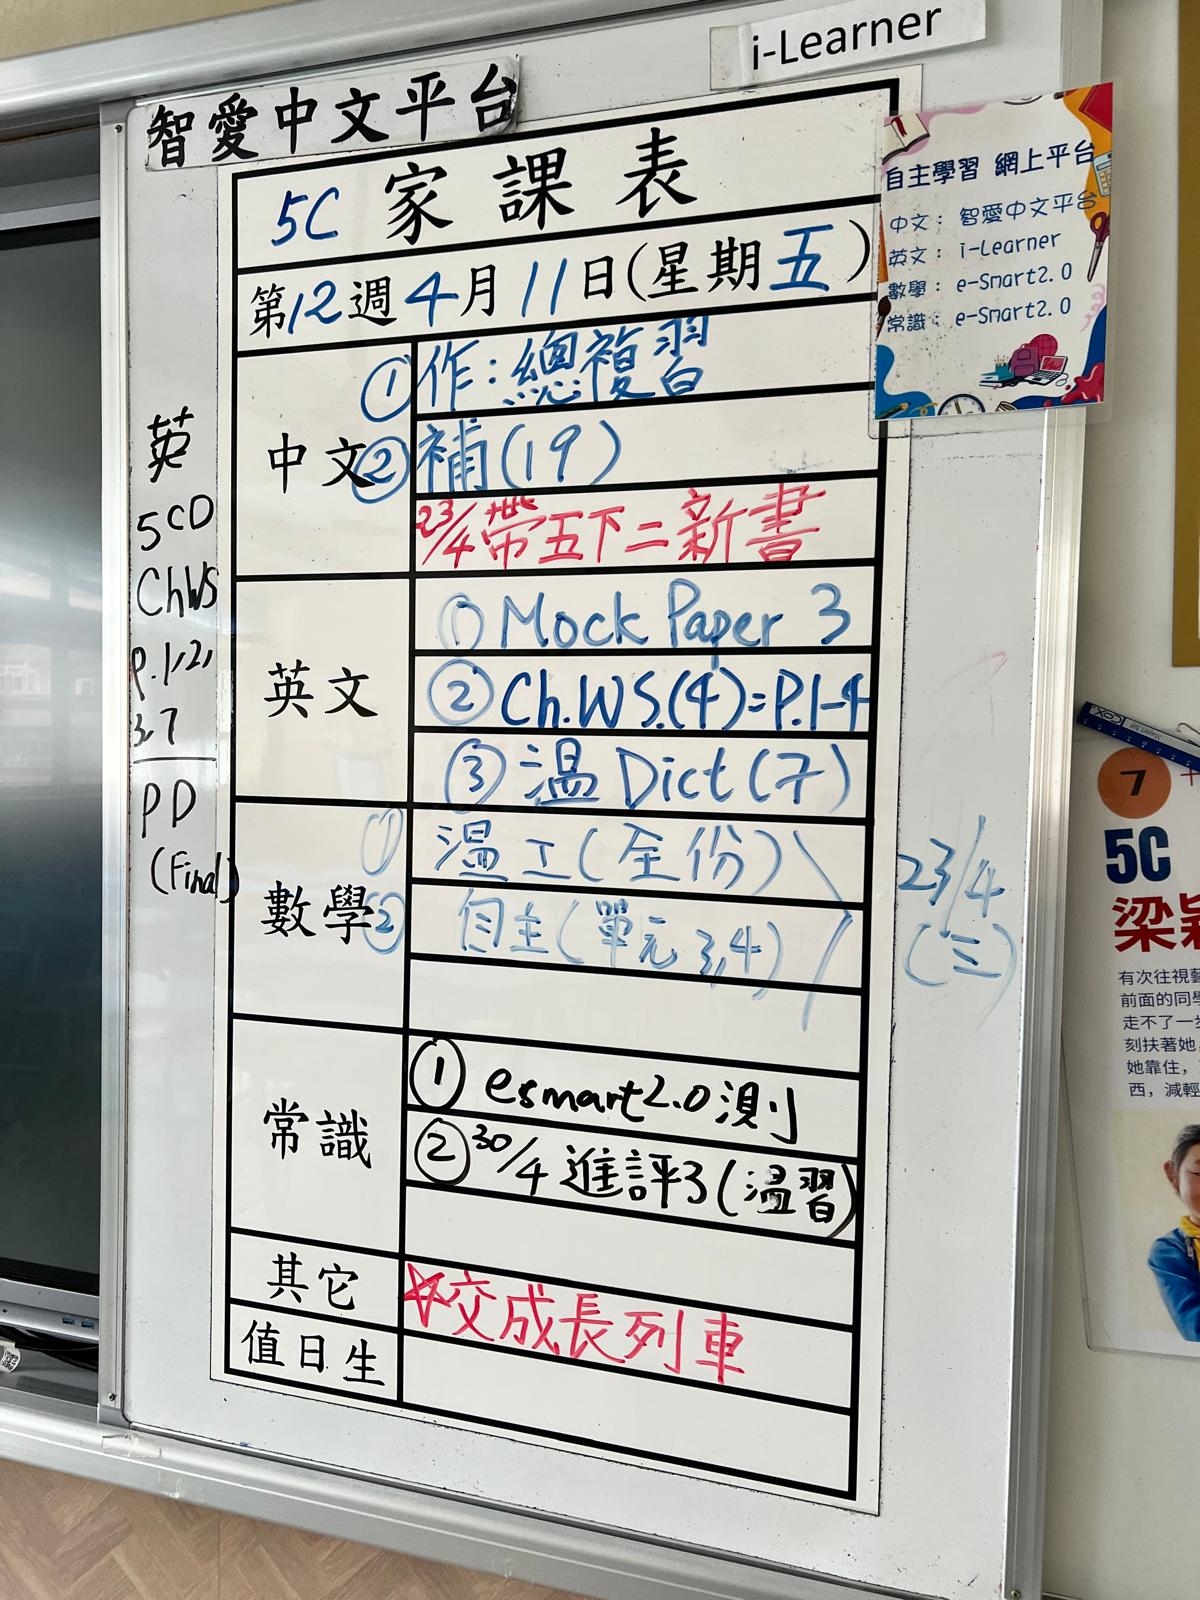 i-Learner
智愛中文平台
5C 家課表
第12週4月11日(星期五)
中文
①作:總複習
②補(19)
23/4帶五下二新書
英文
①Mock Paper 3
②Ch.WS.(4)=P.1-4
③溫Dict(7)
數學
①溫工(全份)
②自主(單元3,4)
23/4
(三)
常識
①esmart2.0測
②30/4進評3(溫習)
其它
☆交成長列車
值日生
英
5CD
ChWS
p.1,2,
3,7
PD
(Final)
自主學習 網上平台
中文: 智愛中文平台
英文: i-Learner
數學: e-Smart2.0
常識: e-Smart2.0
7
5C
梁
有次往視藝
前面的同學
走不了一步
刻扶著她
她靠住，
西，減輕